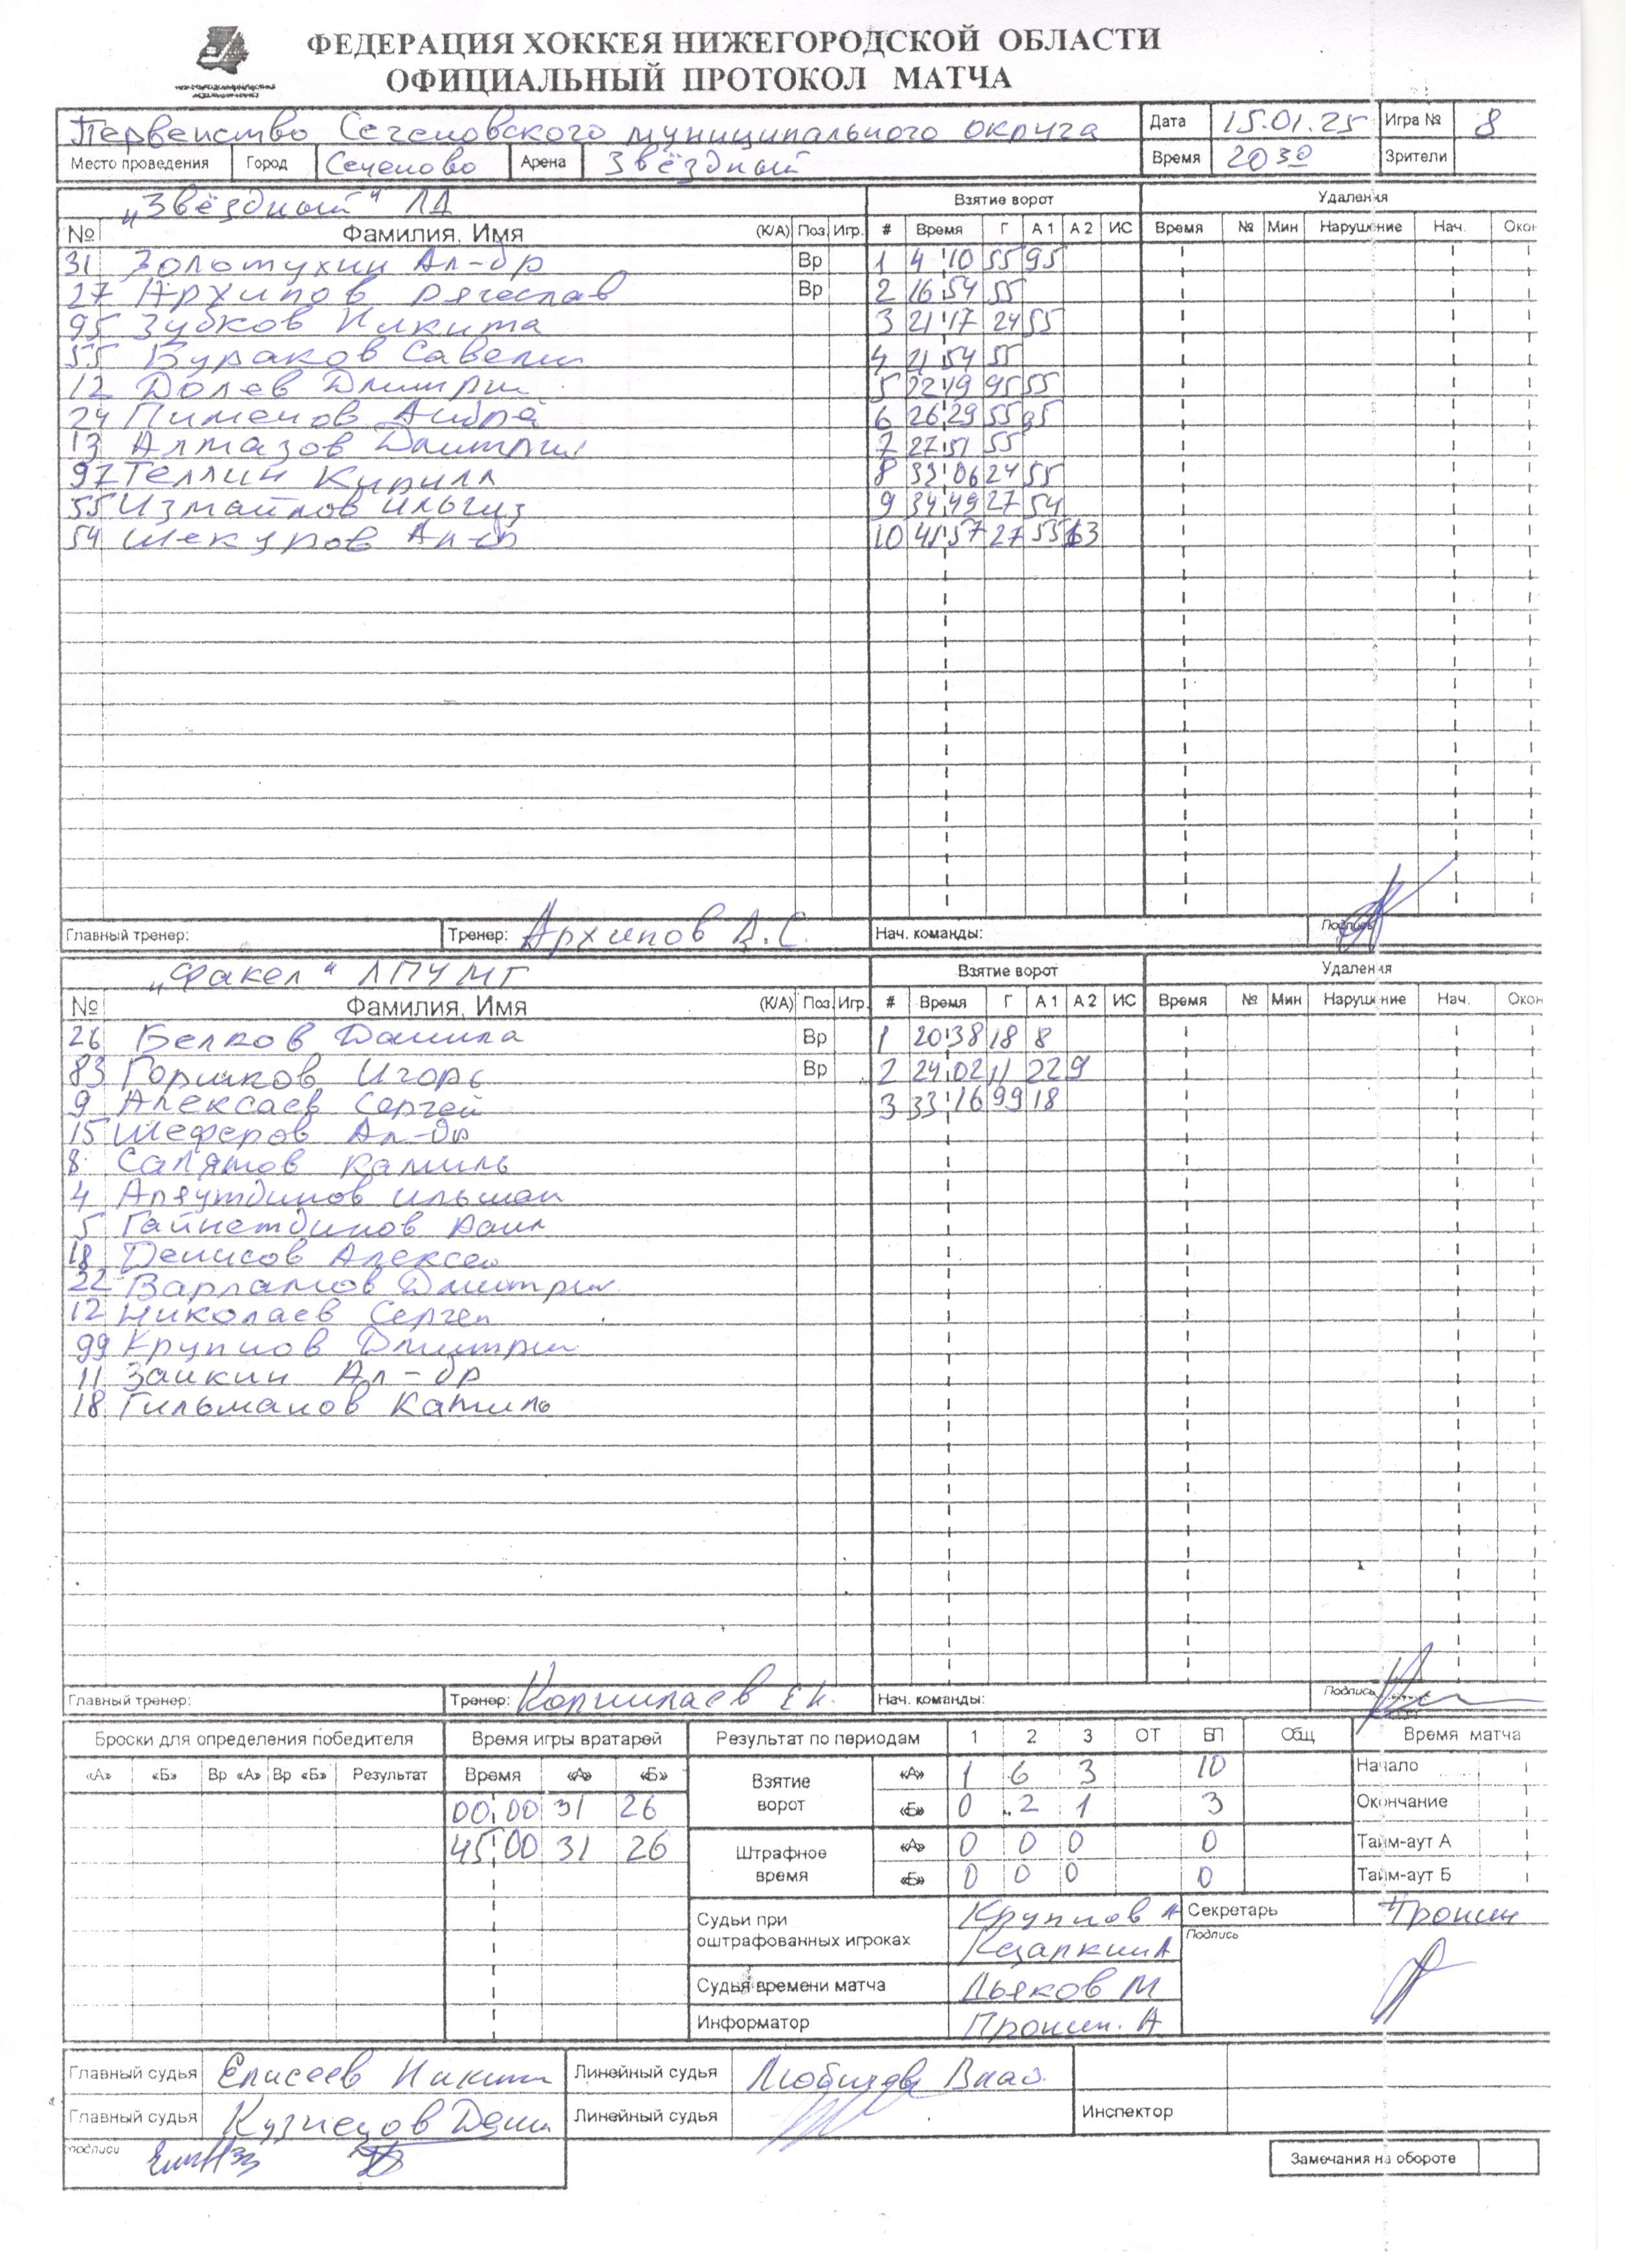 ФЕДЕРАЦИЯ ХОККЕЯ НИЖЕГОРОДСКОЙ ОБЛАСТИ
ОФИЦИАЛЬНЫЙ ПРОТОКОЛ МАТЧА
Первенство Сеченовского муниципального округа Дата 15.01.25 Игра № 8
Место проведения Город Сеченово Арена Звёздный Время 20 30 Зрители
"Звёздный" ЛД Взятие ворот Удаления
№ Фамилия, Имя (К/А) Поз. Игр. # Время Г А 1 А 2 ИС Время № Мин Нарушение Нач. Окон
31 Золотухин Ал-др Вр 1 4 10 55 95
27 Архипов Вячеслав Вр 2 16 54 55
95 Зубков Никита 3 21 17 24 55
55 Бураков Савелий 4 21 54 55
12 Долев Дмитрий 5 22 49 95 55
24 Пименов Андрей 6 26 29 55 95
13 Алмазов Дмитрий 7 27 51 55
97 Теллин Кирилл 8 33 06 24 55
55 Измайлов Ильгиз 9 34 49 27 54
54 Шекуров Ал-др 10 41 57 27 55 13
Главный тренер: Тренер: Архипов В.С. Нач. команды: Подпись
"Факел" ЛПУМГ Взятие ворот Удаления
№ Фамилия, Имя (К/А) Поз. Игр. # Время Г А 1 А 2 ИС Время № Мин Нарушение Нач. Окон
26 Белков Данила Вр 1 20 38 18 8
83 Горшков Игорь Вр 2 24 02 11 22 9
9 Алексаев Сергей 3 33 16 99 18
15 Шеферов Ал-др
8 Салямов Камиль
4 Аляутдинов Ильман
5 Гайнетдинов Раил
18 Денисов Алексей
22 Варламов Дмитрий
12 Николаев Сергей
99 Крупнов Дмитрий
11 Заикин Ал-др
18 Гильманов Камиль
Главный тренер: Тренер: Нач. команды: Подпись
Броски для определения победителя Время игры вратарей Результат по периодам 1 2 3 ОТ БП Общ Время матча
«А» «Б» Вр «А» Вр «Б» Результат Время «А» «Б» Взятие ворот «А» 1 6 3 10 Начало
00 00 31 26 «Б» 0 2 1 3 Окончание
45 00 31 26 Штрафное время «А» 0 0 0 0 Тайм-аут А
«Б» 0 0 0 0 Тайм-аут Б
Судьи при оштрафованных игроках Крупнов А Секретарь Пронин
Подпись
Судья времени матча Дьяков М
Информатор Пронин. А
Главный судья Елисеев Никита Линейный судья
Главный судья Кузнецов Денис Линейный судья Инспектор
подписи
Замечания на обороте